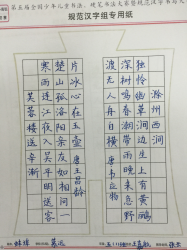 规范汉字组专用纸
独怜幽草涧边生上有黄鹂
深树鸣春潮带雨晚来急野
渡无人舟自横
唐韦应物
片冰心在玉壶
唐王昌龄
楚山孤洛阳亲友如相问一
寒雨连江夜入吴平明送客
芙蓉楼送辛渐